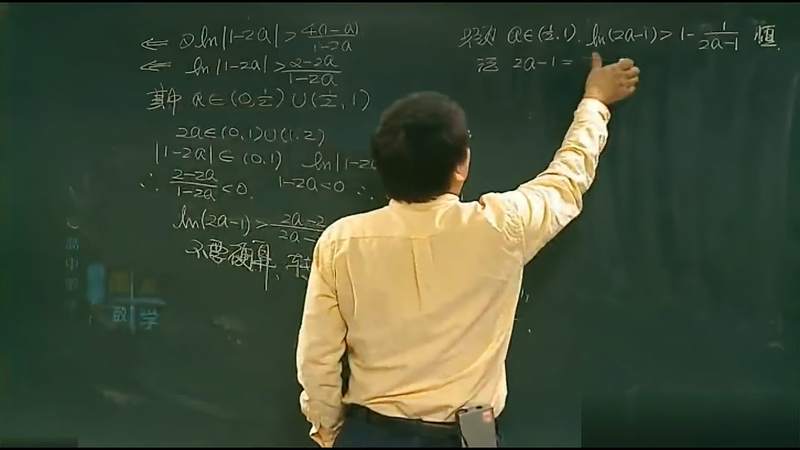 ⇐ 2ln|1-2a|>4(1-a)/1-2a
⇐ ln|1-2a|>2-2a/1-2a
其中 a∈(0,½)∪(½,1)
2a∈(0,1)∪(1,2)
|1-2a|∈(0,1) ln|1-2a
∴ 2-2a/1-2a<0. 1-2a<0 ∴
ln(2a-1)>2a-2/2a-
不要硬算、
a∈(½,1). ln(2a-1)>1-1/2a-1 恒
2a-1=
高中
数学